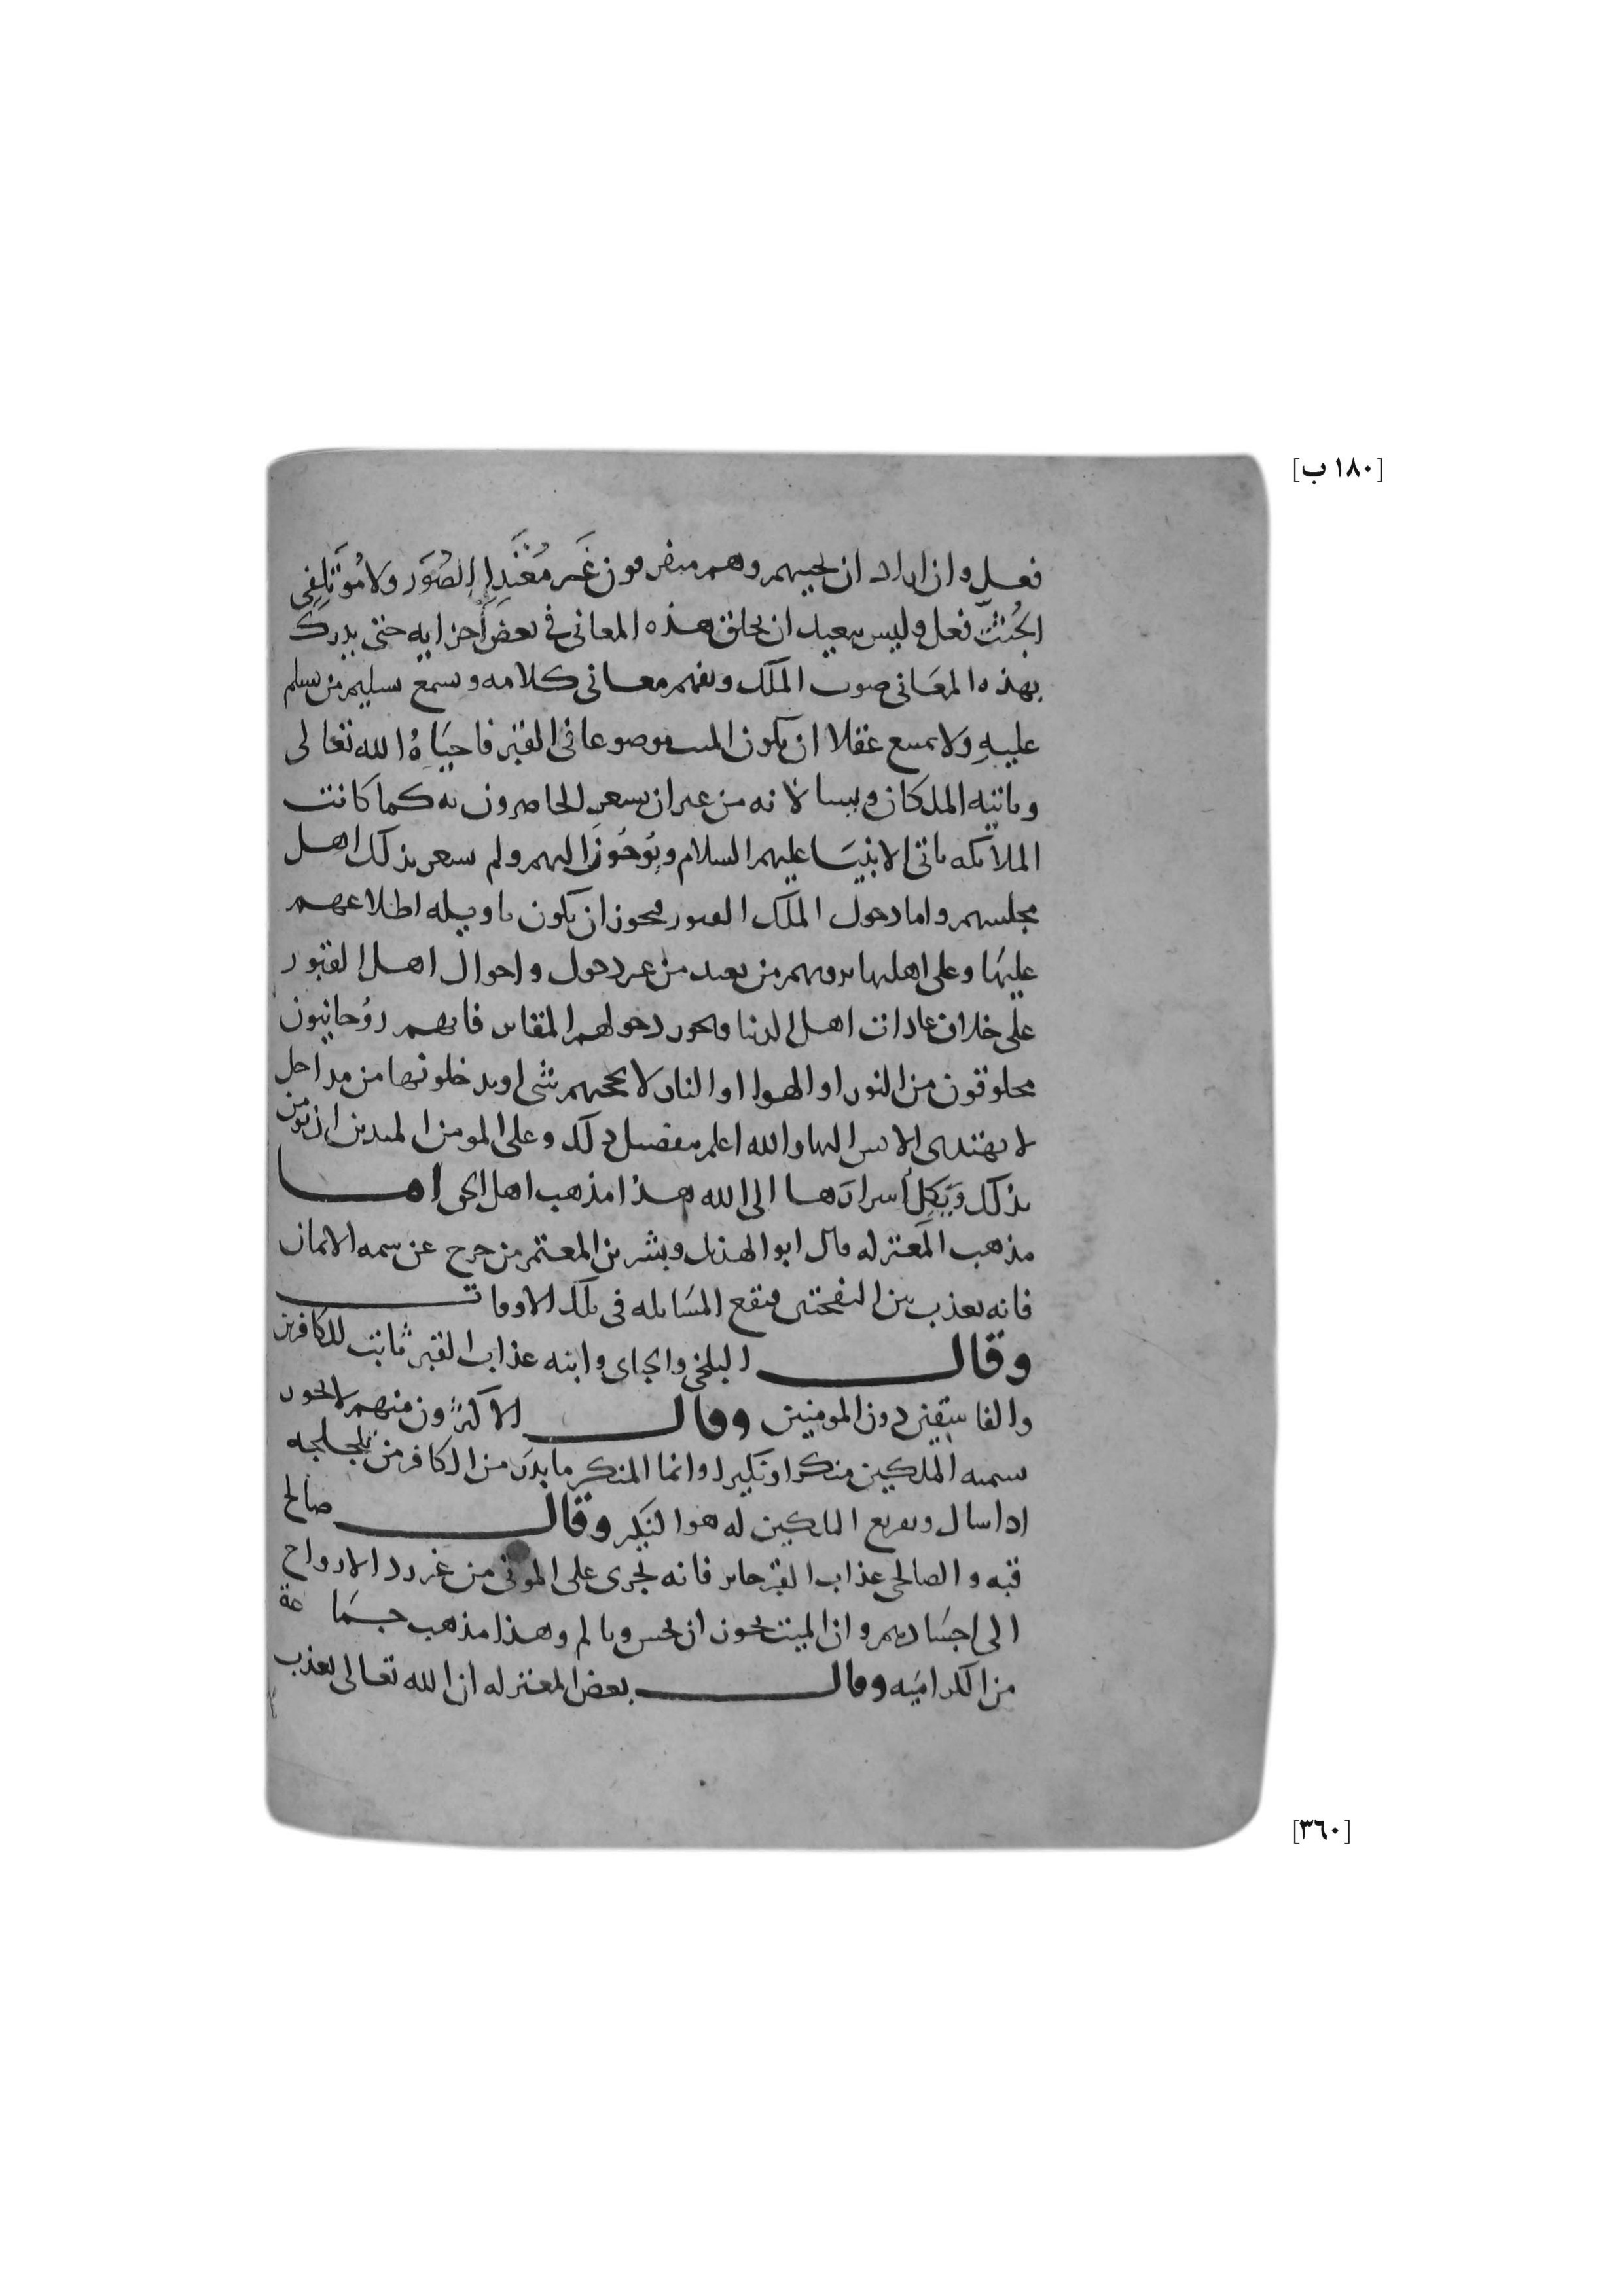 [١٨٠ ب]
فعل وان اراد ان يحييهم وهم متفرقون غير الصُوَر ولا مُؤتلفي
الجُثث فعل وليس ببعيد ان يخلق هذه المعاني في بعض أجزايه حتى يدرك
بهذه المعَاني صوت الملك ويفهم معاني كلامه ويسمع تسليم من يسلم
عليهِ ولا يمتنع عقلا ان يكون الميت موضوعا في القبر فاحيَاهُ الله تعالى
وياتيه الملكان ويسالانه من غير ان يشعر الحاضرون به كما كانت
الملائكه ياتي الانبيَا عليهم السلام ويُوحُون اليهم ولم يشعر بذلك اهل
مجلسهم واما دخول الملك القبور فيجوز ان يكون تاويله اطلاعهم
عليهَا وعلى اهلها من بعد من غير دخول واحوال اهل القبور
على خلاف عادات اهل الدنيا ويجوز دخولهم المقابر فانهم روُحانيون
مخلوقون من النور او الهوا او النار لا يحجبهم شي او يدخلونها من مداخل
لا يهتدي الانس اليها والله اعلم بتفصيل ذلك وعلى المومن المتدين ان يومن
بذلك وَيَكِلُ أسرارَها الى الله هذا مذهب اهل الحق اما
مذهب المعتزله قال ابو الهذيل وبشر بن المعتمر من خرج عن سمه الايمان
فانه يعذب بين النفختين وتقع المسَايله في تلك الاوقات
وقال البلخي والجباي وابنه عذاب القبر ثابت للكافرين
والفاسقين دون المومنين وقال الاكثرون منهم لا يجوز
تسميه الملكين منكرا ونكيرا وانما المنكر ما يبدر من الكافر من تلجلجه
اذا سال وتقريع الملكين له هو النَكير وقال صالح
قبه والصالحي عذاب القبر جايز فانه يجري على الموتى من غير رد الارواح
الى اجسَادهم وان الميت يجوز ان يحس ويالم وهذا مذهب جمَاعة
من الكراميَه وقال بعض المعتزله ان الله تعالى يعذب
[٣٦٠]